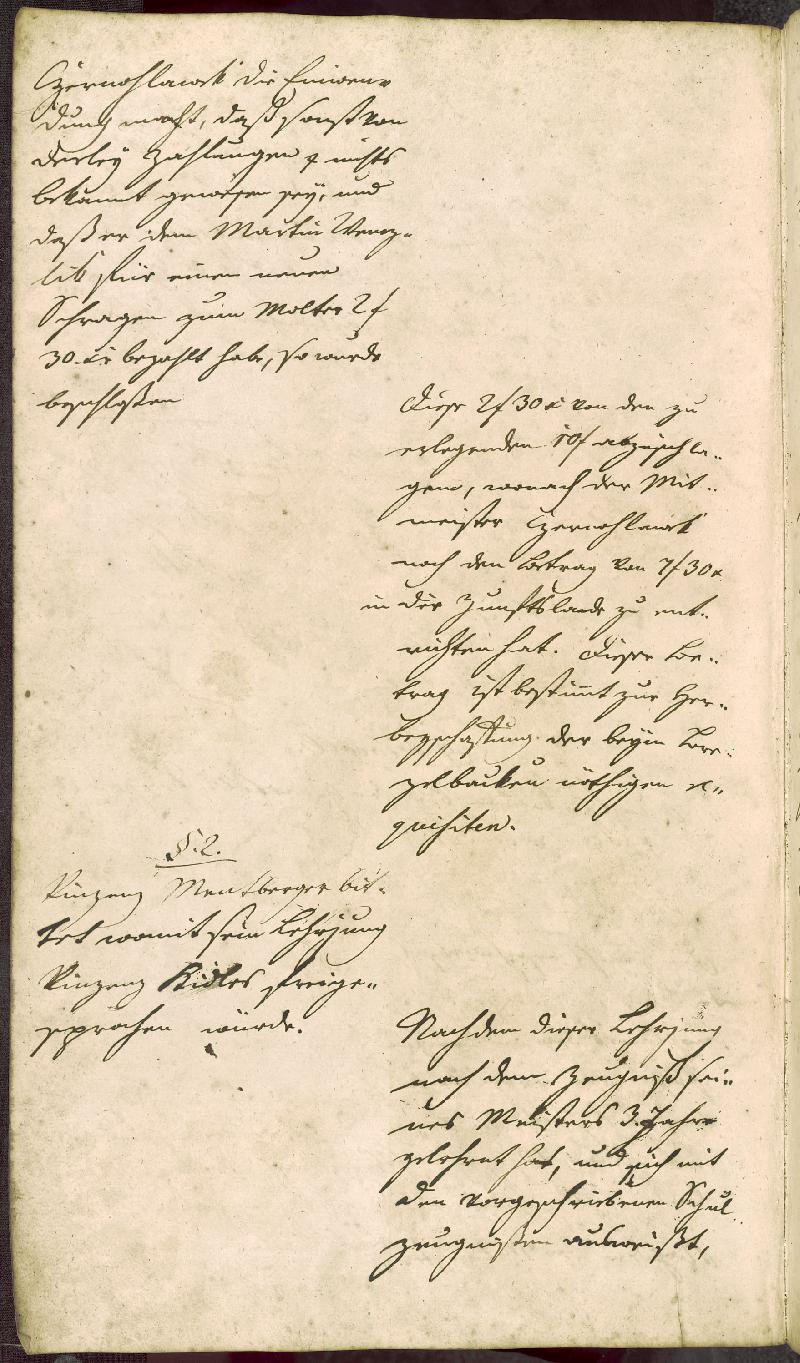 Czernohlawek die Einwen-
dung macht, daß sonst von
derley Zahlungen nichts
bekannt gewesen sey, und
daß er dem Martin Wenz-
lik für einen neuen
Schragen zum Molter 2 f
30 xr bezahlt habe, so wurde
beschloßen
Diese 2 f 30 x von den zu
erlegenden 10 f abzuschla-
gen, wonach der Mit-
meister Czernohlawek
noch den Betrag von 7 f 30 x
in die Zunftslade zu ent-
richten hat. Dieser Be-
trag ist bestimt zur Her-
beyschaffung der beym Bre-
zelbacken nöthigen Re-
quisiten.
§. 2.
Vinzenz Mentberger bit-
tet womit sein Lehrjung
Vinzenz Kidles freige-
sprochen würde.
Nachdem dieser Lehrjung
nach dem Zeugniß sei-
nes Meisters 3 Jahre
gelehrnt hat, und sich mit
den vorgeschriebenen Schul
zeugnißen ausweißt,